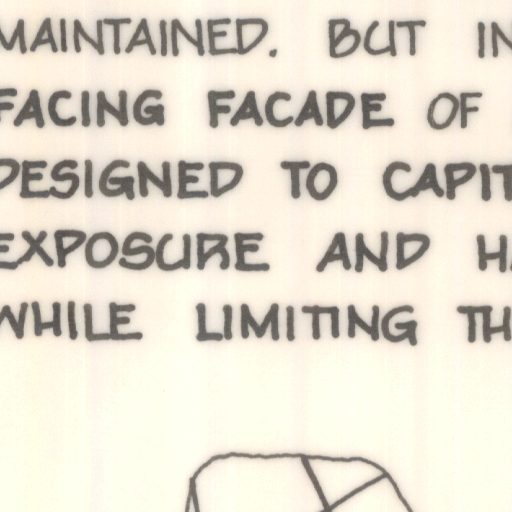 MAINTAINED. BUT IN
FACING FACADE OF
DESIGNED TO CAPIT
EXPOSURE AND HA
WHILE LIMITING TH